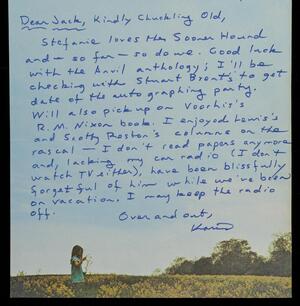 Dear Jack, Kindly Chuckling Old,
Stefanie loves the Sooner Hound
and — so far — so do we. Good luck
with the Anvil anthology; I'll be
checking with Stuart Brent's to get
date of the autographing party.
Will also pick up on Voorhis's
R. M. Nixon book. I enjoyed Lewis's
and Scotty Reston's columns on the
rascal — I don't read papers anymore
and, lacking my car radio (I don't
watch TV either), have been blissfully
forgetful of him while we've been
on vacation. I may keep the radio
off.
Over and out,